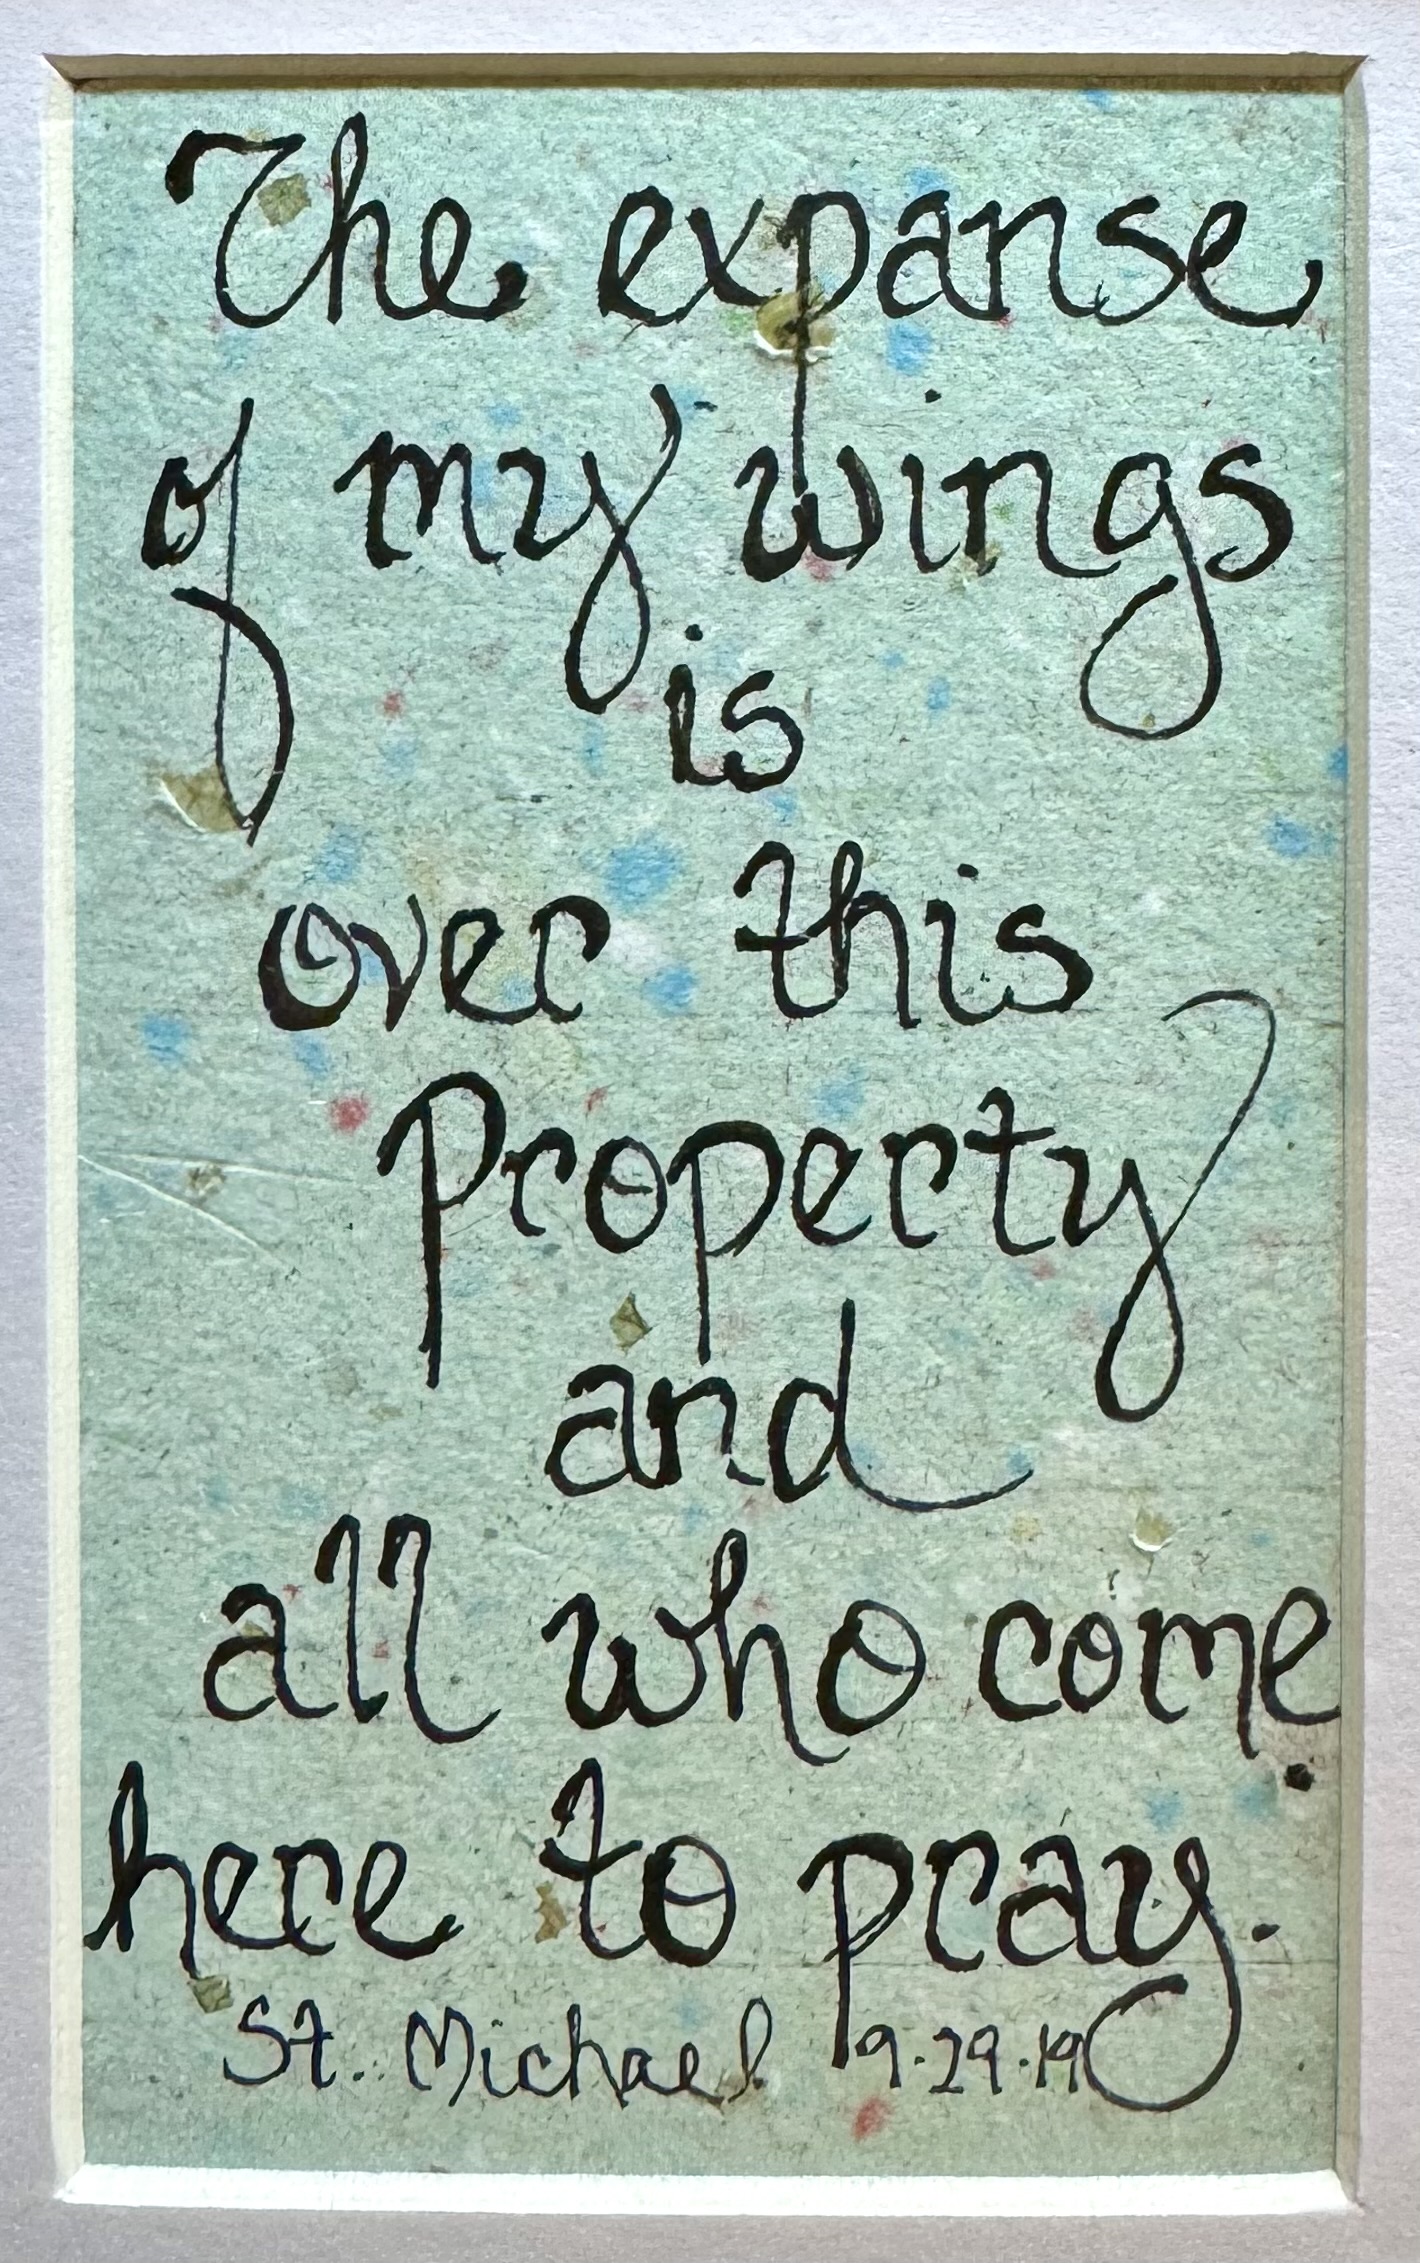 The expanse
of my wings
is
over this
property
and
all who come
here to pray.
St. Michael 9.29.19